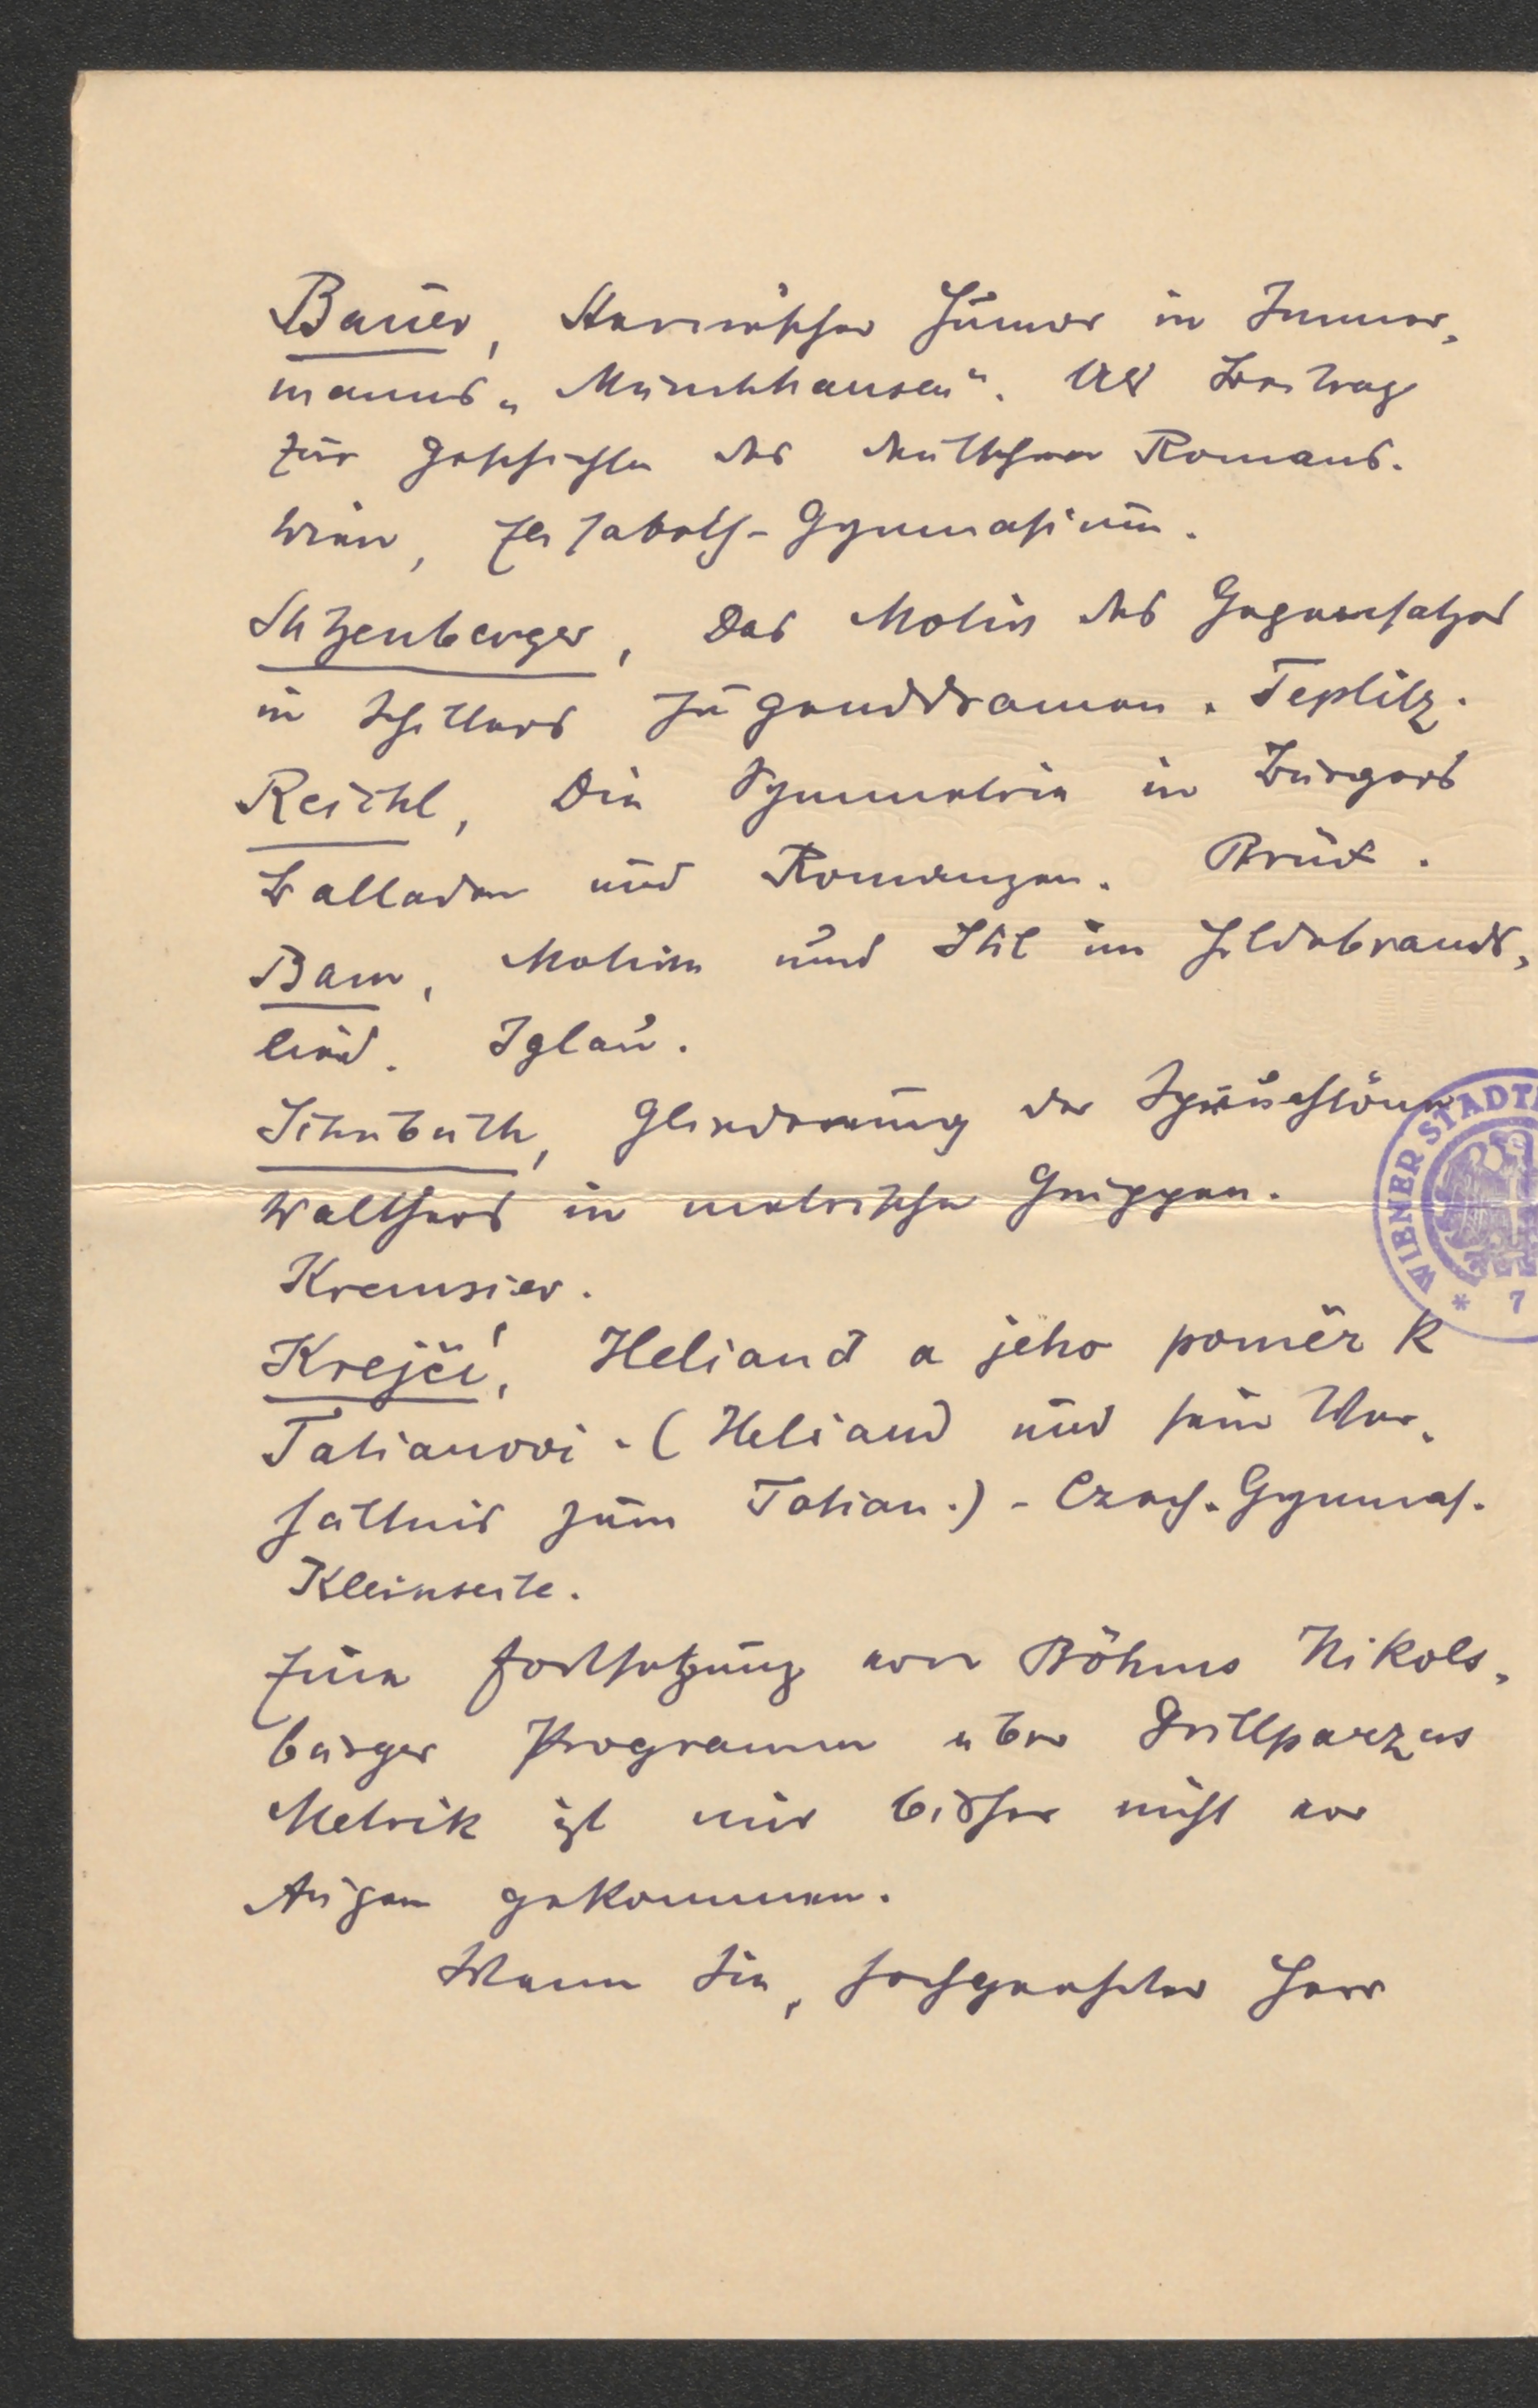 Bauer, Sternischer Humor in Immer-
manns „Münchhausen". Als Beitrag
zur Geschichte des deutschen Romans.
Wien, Elisabeth-Gymnasium.
Stzenberger, Das Motiv des Gegensatzes
in Schillers Jugenddramen. Teplitz.
Reichl, Die Symmetrie in Bürgers
Balladen und Romanzen. Brüx.
Bam, Motive und Stil im Hildebrands-
lied. Iglau.
Schubuth, Gliederung der Spruchtöne
Walthers in metrische Gruppen.
Kremsier.
Krejčí, Heliand a jeho poměr k
Tatianovi. (Heliand und sein Ver-
hältnis zum Tatian.) - Czech. Gymnas.
Kleinseite.
Eine Fortsetzung von Böhms Nikols-
burger Programm über Grillparzers
Metrik ist mir bisher nicht vor
Augen gekommen.
Wenn Sie, hochgeehrter Herr
WIENER STADT
* 7